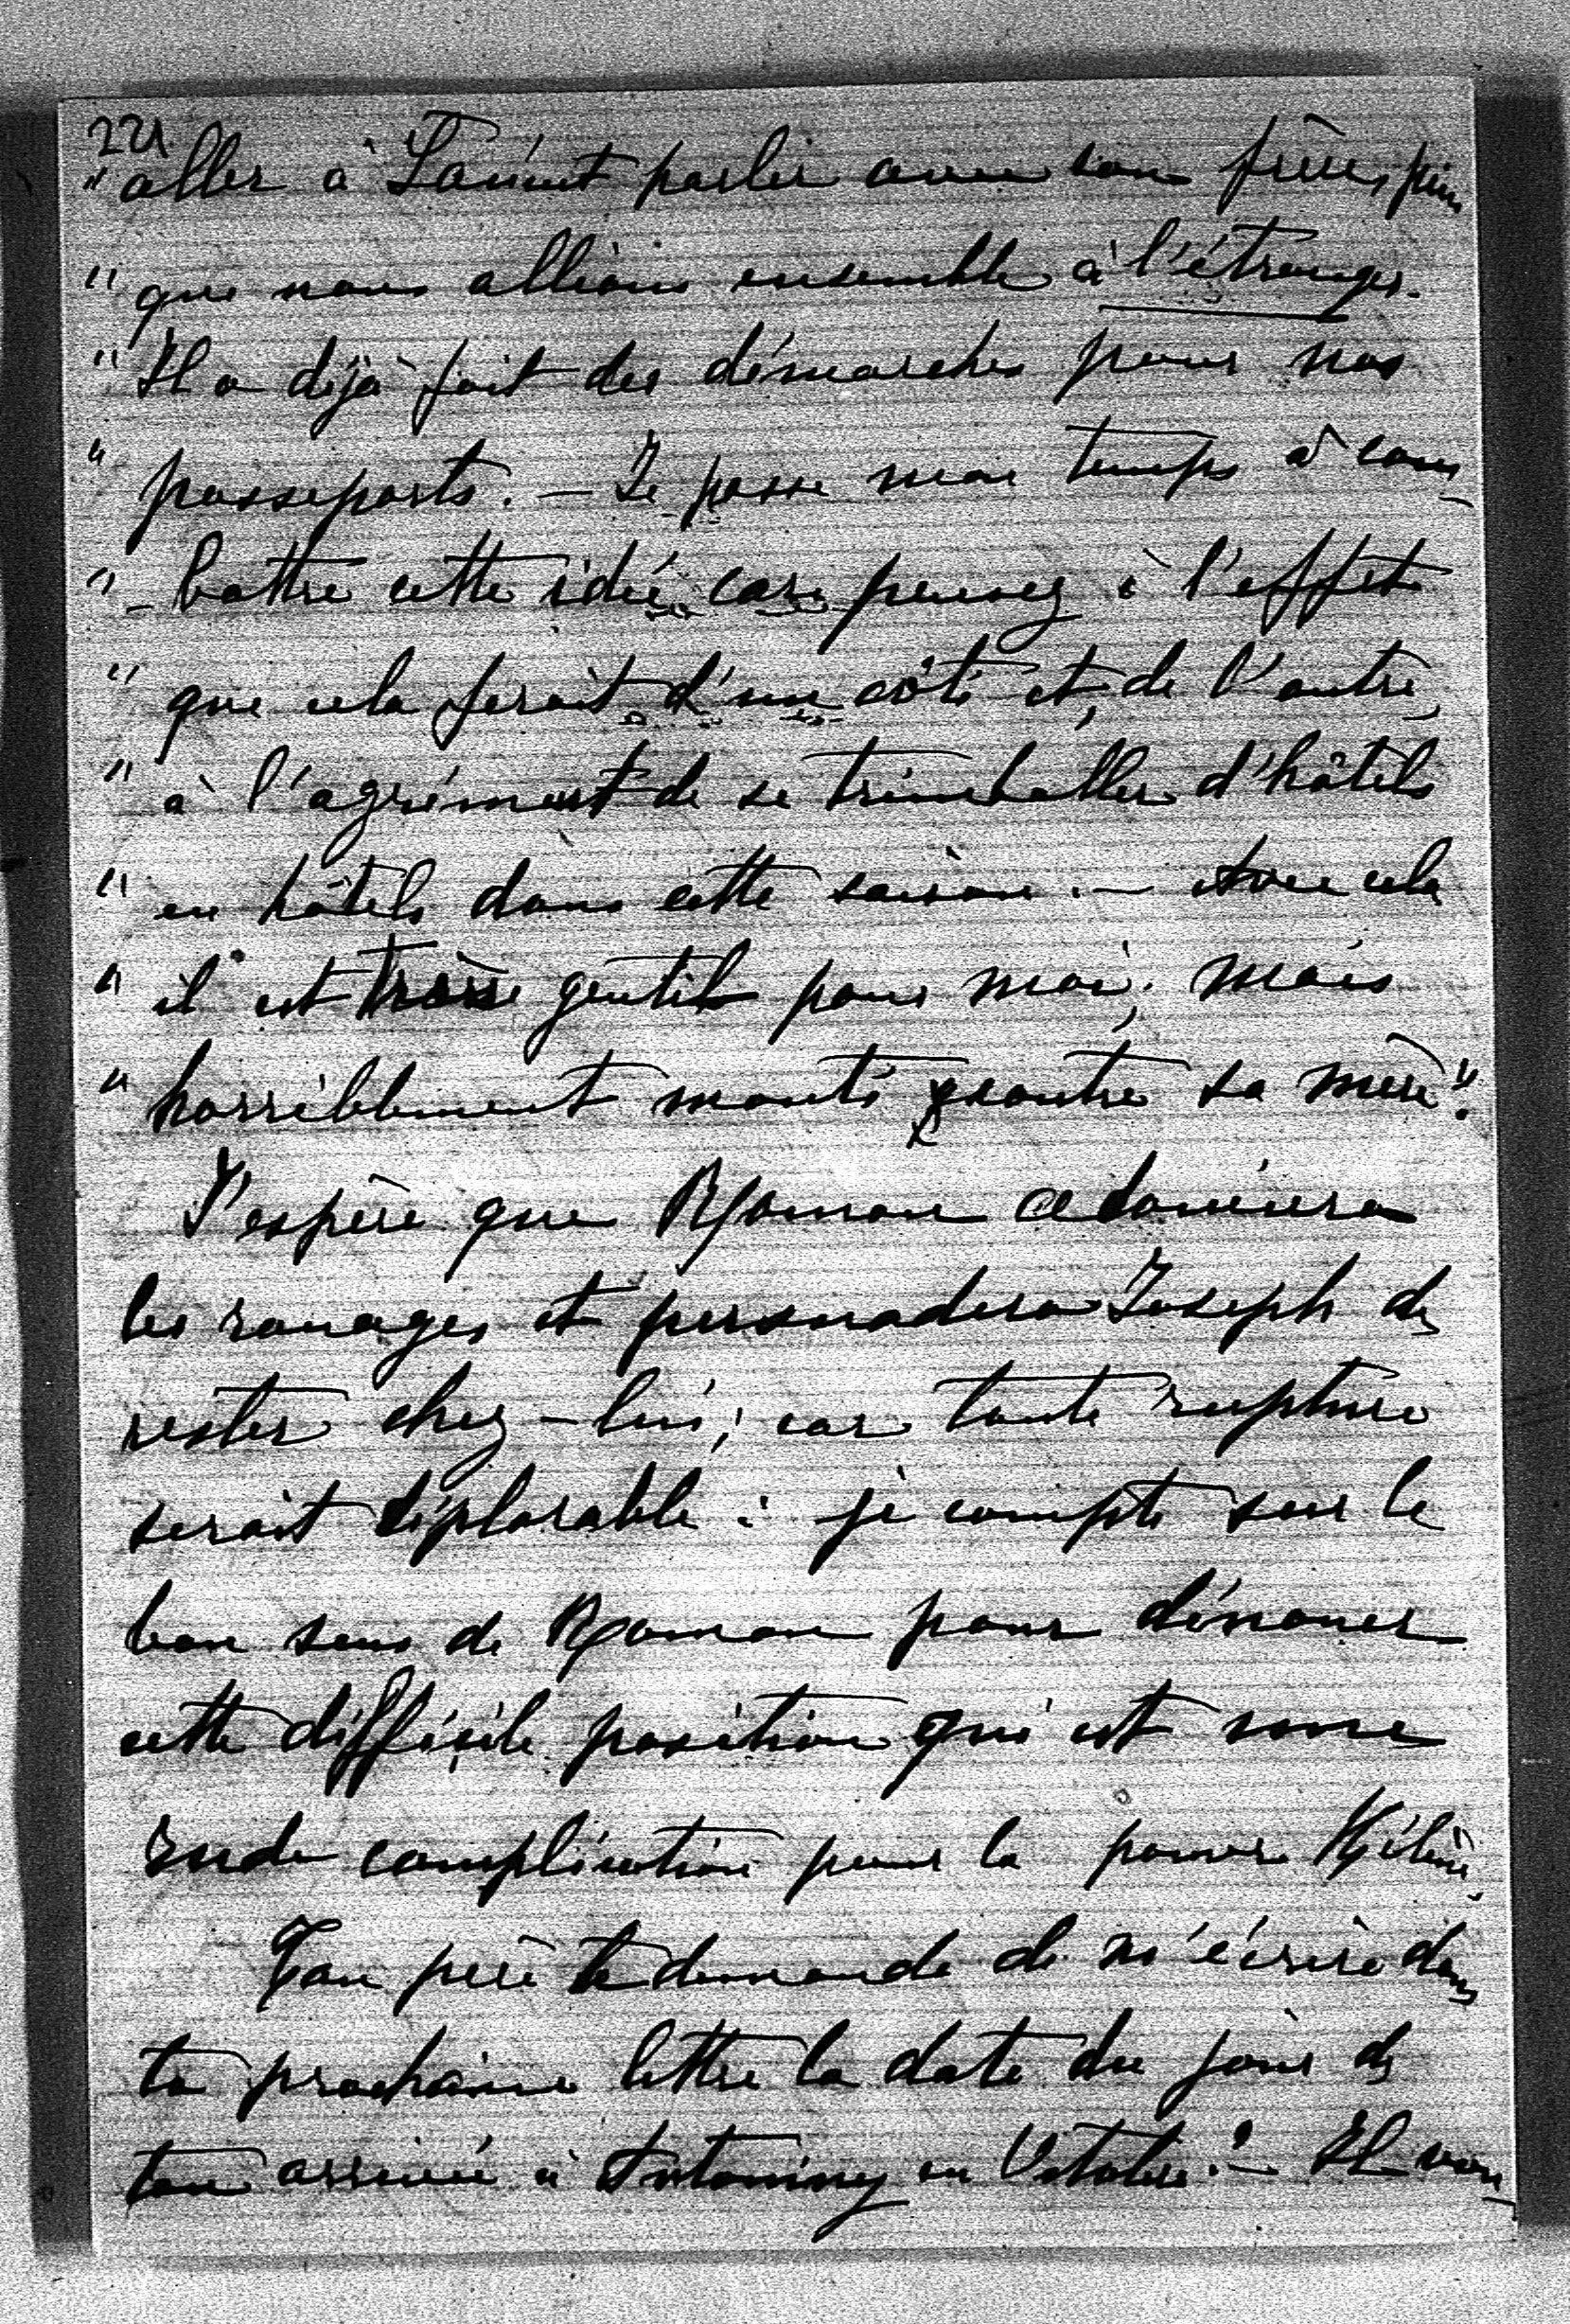 221.
" aller à Łańcut parler avec son frère, puis
" que nous allions ensemble à l'étranger.
" Il a déjà fait des démarches pour nos
" passeports. — Je passe mon temps à com-
" - battre cette idée, car pensez à l'effet
" que cela ferait d'un côté et, de l'autre,
" à l'agrément de se trimballer d'hôtels
" en hôtels dans cette saison. — Avec cela
" il est très gentil pour moi, mais
" horriblement monté contre sa mère".
J'espère que Roman
les rouages et persuadera Joseph de
rester chez-lui; car toute rupture
serait déplorable : je compte sur le
bon sens de Roman pour dénouer
cette difficile position qui est une
rude complication pour la pauvre Hélène.
Ton père te demande de m'écrire dans
ta prochaine lettre la date du jour de
ton arrivée à Antoniny en Octobre? — Il vou-